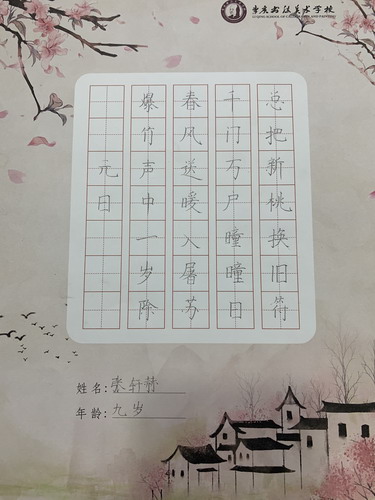 重庆书法美术学校
元日
爆竹声中一岁除
春风送暖入屠苏
千门万户曈曈日
总把新桃换旧符
姓名:
年龄:九岁